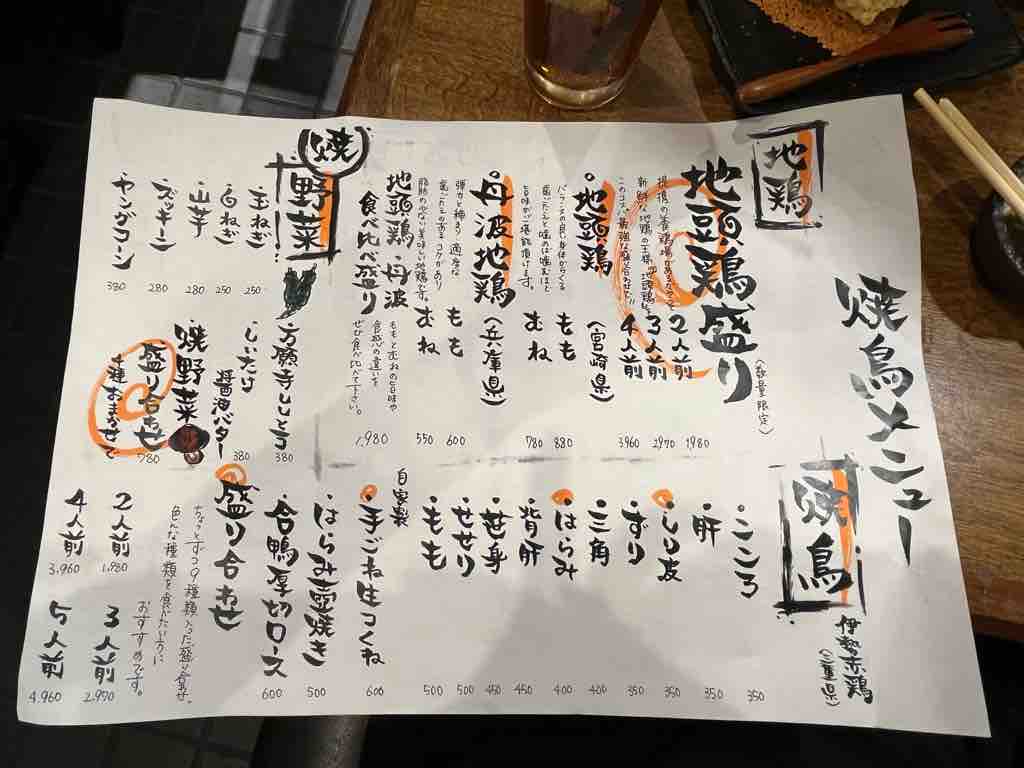 焼鳥メニュー
地鶏
地頭鶏盛り(数量限定)
2人前 1,980
3人前 2,970
4人前 3,960
提携の養鶏場があるからこそ
新鮮な地鶏の王様"地頭鶏"を
このコスパ最強な盛合わせで!!
・地頭鶏(宮崎県)
バランスの良い身体からくる
歯ごたえと味のは噛むほど
旨味がご堪能頂けます。
もも 880
むね 780
・丹波地鶏(兵庫県)
弾力と締まり適度な
歯ごたえのあるコクがあり
脂肪の少ない美味しい地鶏です。
もも 600
むね 550
地頭鶏・丹波
食べ比べ盛り
ももとむねの旨味や
食感の違いを
ぜひ食べ比べて下さい。
1,980
焼野菜
・玉ねぎ 250
・白ねぎ 250
・山芋 280
・ズッキーニ 280
・ヤングコーン 380
・万願寺ししとう 380
・しいたけ
醤油バター 380
・焼野菜
盛り合わせ
5種おまかせで
780
焼鳥
伊勢赤鶏
(三重県)
・こころ 350
・肝 350
・しり皮 350
・ずり 350
・三角 400
・はらみ 400
・背肝 450
・笹身 450
・せせり 500
・もも 500
自家製
・手ごねつくね 600
・はらみ壺焼き 500
・合鴨厚切ロース 600
盛り合わせ
ちょっとずつ9種類入った盛り合せ。
色んな種類を食べたい方に
おすすめです。
2人前 1,980
3人前 2,970
4人前 3,960
5人前 4,960